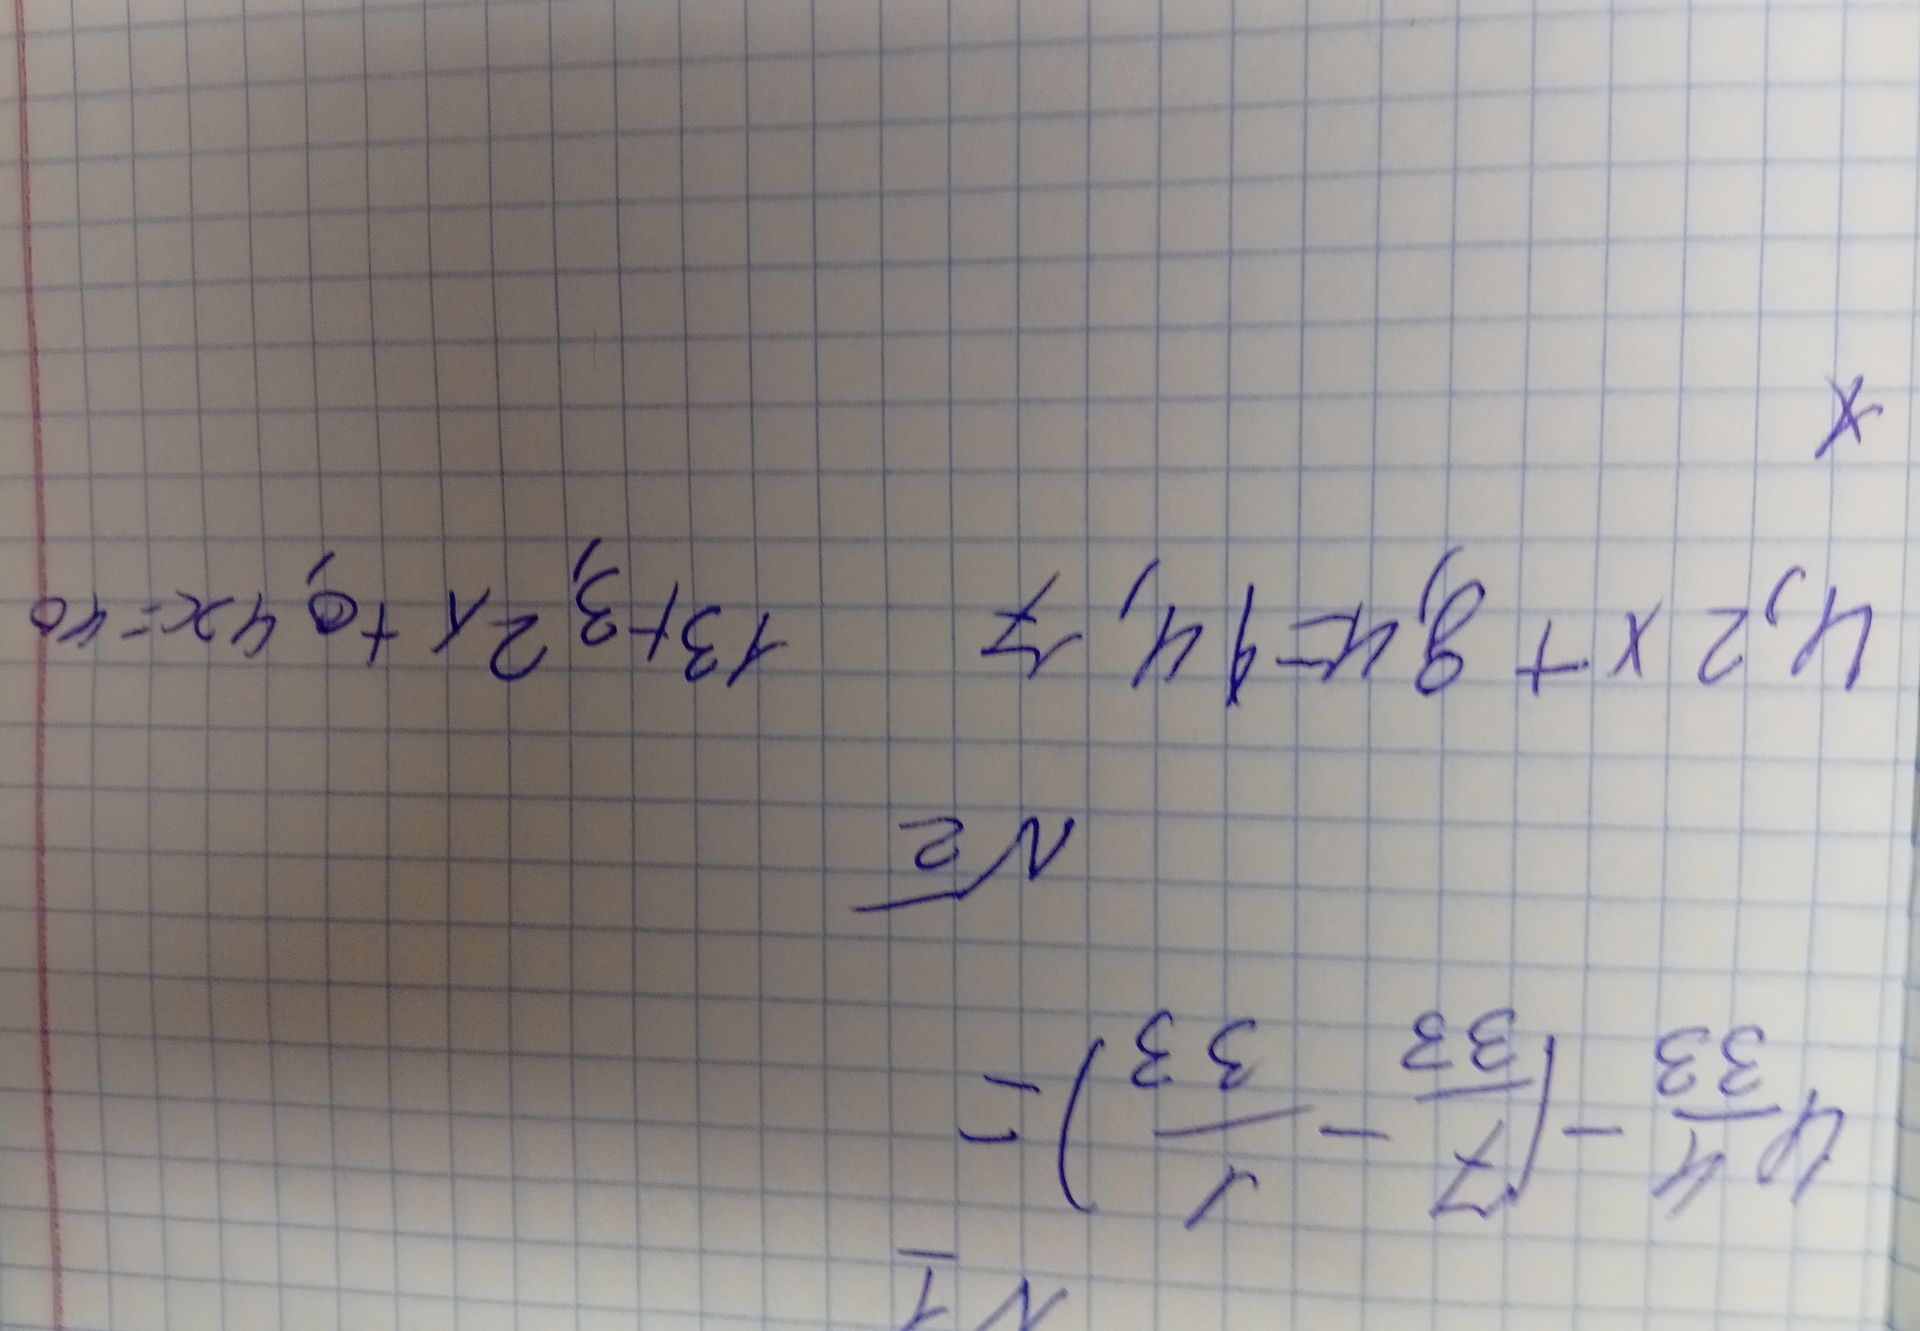 N1
4 4/33 - (7/33 - 1/33) =
N2
4,2x + 8,4 = 14,7 13 + 3,2x + 0,4x = 40
x